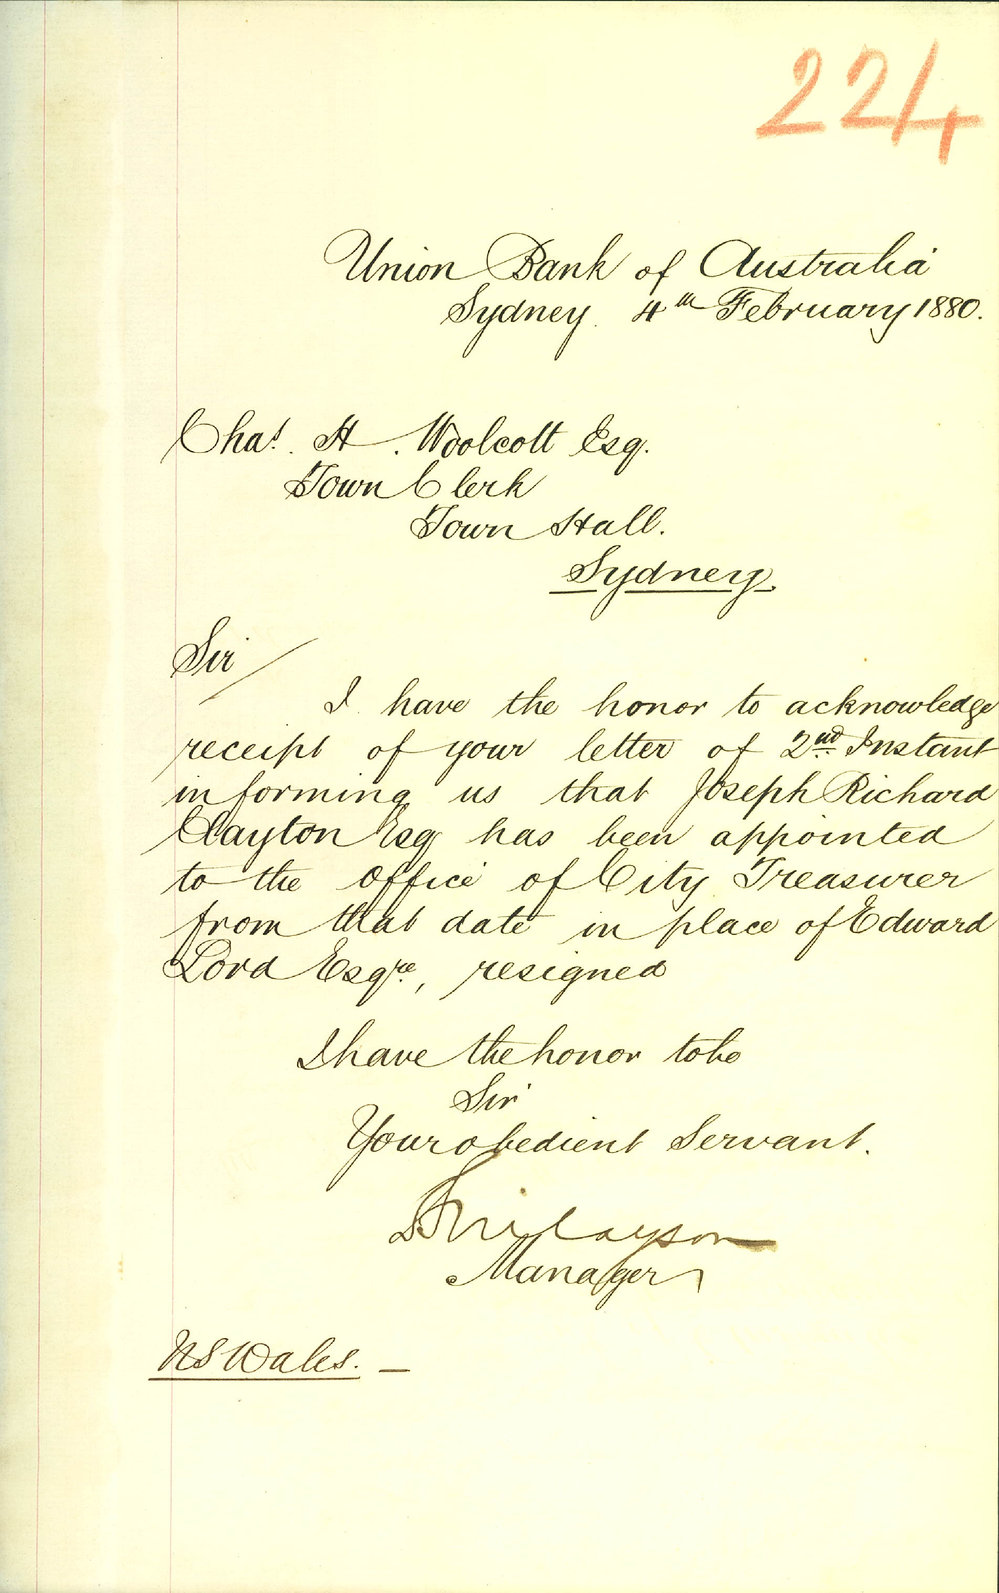 224
Union Bank of Australia
Sydney 4th February 1880.
Chas. H. Woolcott Esq.
Town Clerk
Town Hall.
Sydney.
Sir
I have the honor to acknowledge
receipt of your letter of 2nd Instant
informing us that Joseph Richard
Clayton Esq has been appointed
to the Office of City Treasurer
from that date in place of Edward
Lord Esqre, resigned
I have the honor to be
Sir
Your obedient Servant.
Manager
NSWales. —